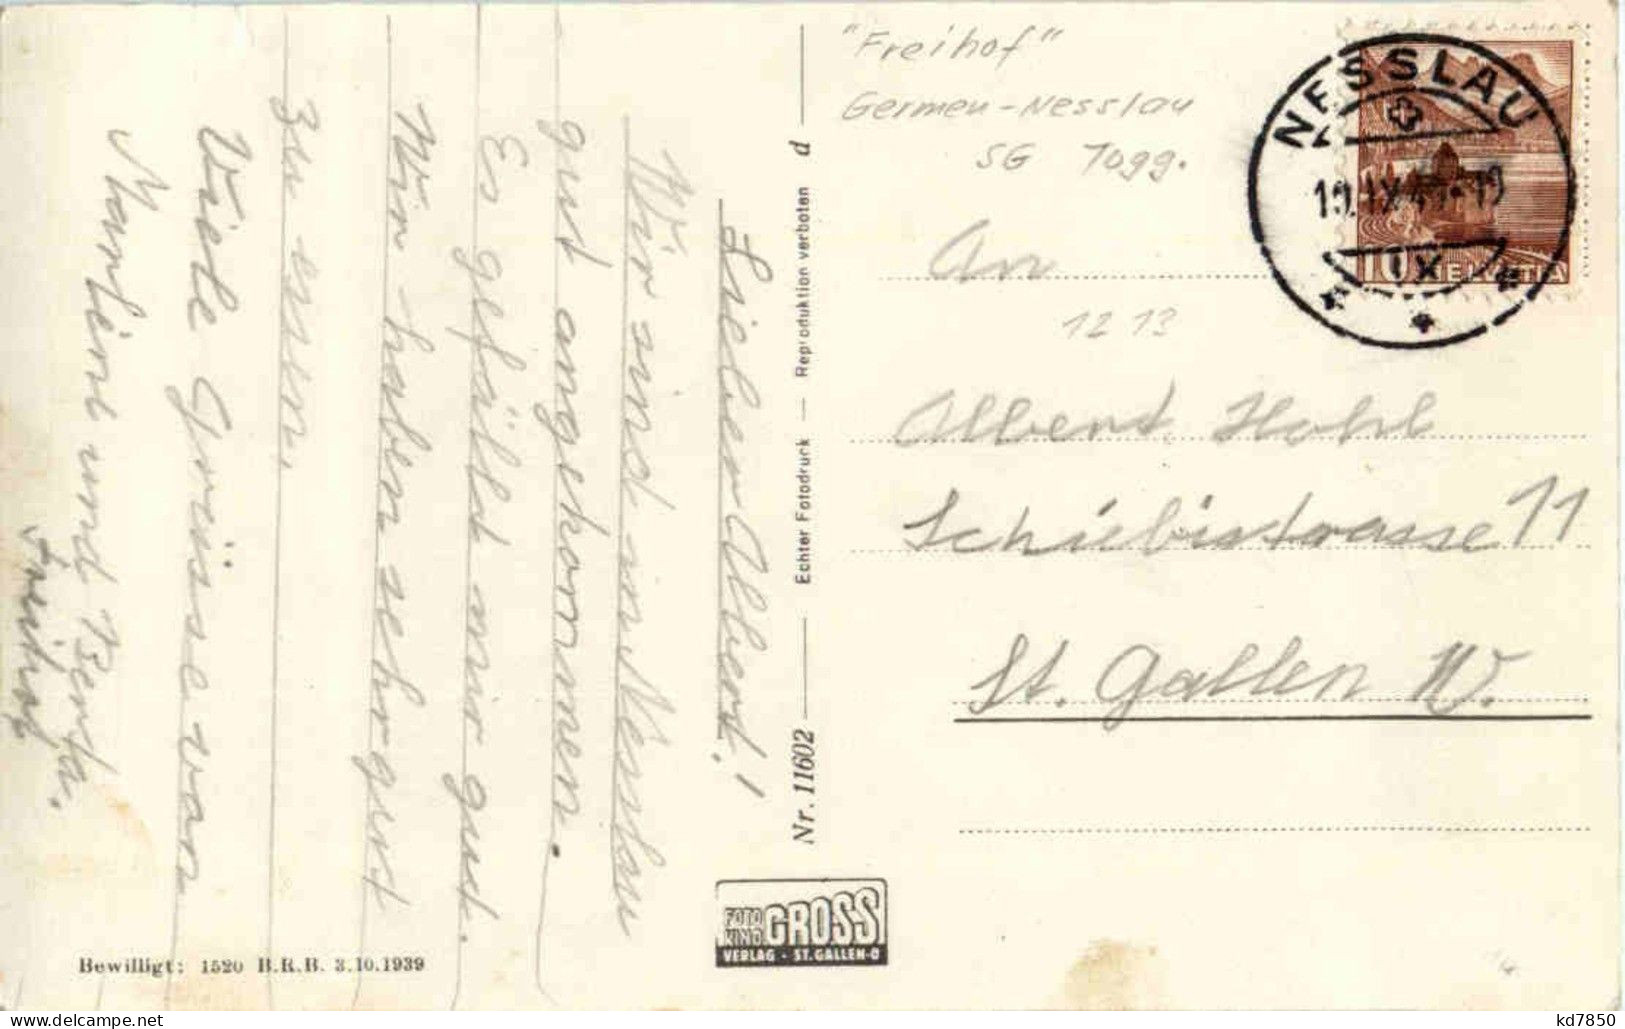 Lieber Albert!
Wir sind in Nesslau
gut angekommen.
Es gefällt mir gut.
Wir haben sehr gut
zu essen.
Viele Grüsse von
und Berta.
"Freihof"
Germen-Nesslau
SG Togg.
An
1213
Albert Hohl
Schiebistrasse 11
St. Gallen W.
NESSLAU
IX
10 HELVETIA
Nr. 11602 — Echter Fotodruck — Reproduktion verboten d
FOTO KINO GROSS
VERLAG · ST. GALLEN-O
Bewilligt: 1520 B.R.B. 3.10.1939
kd7850